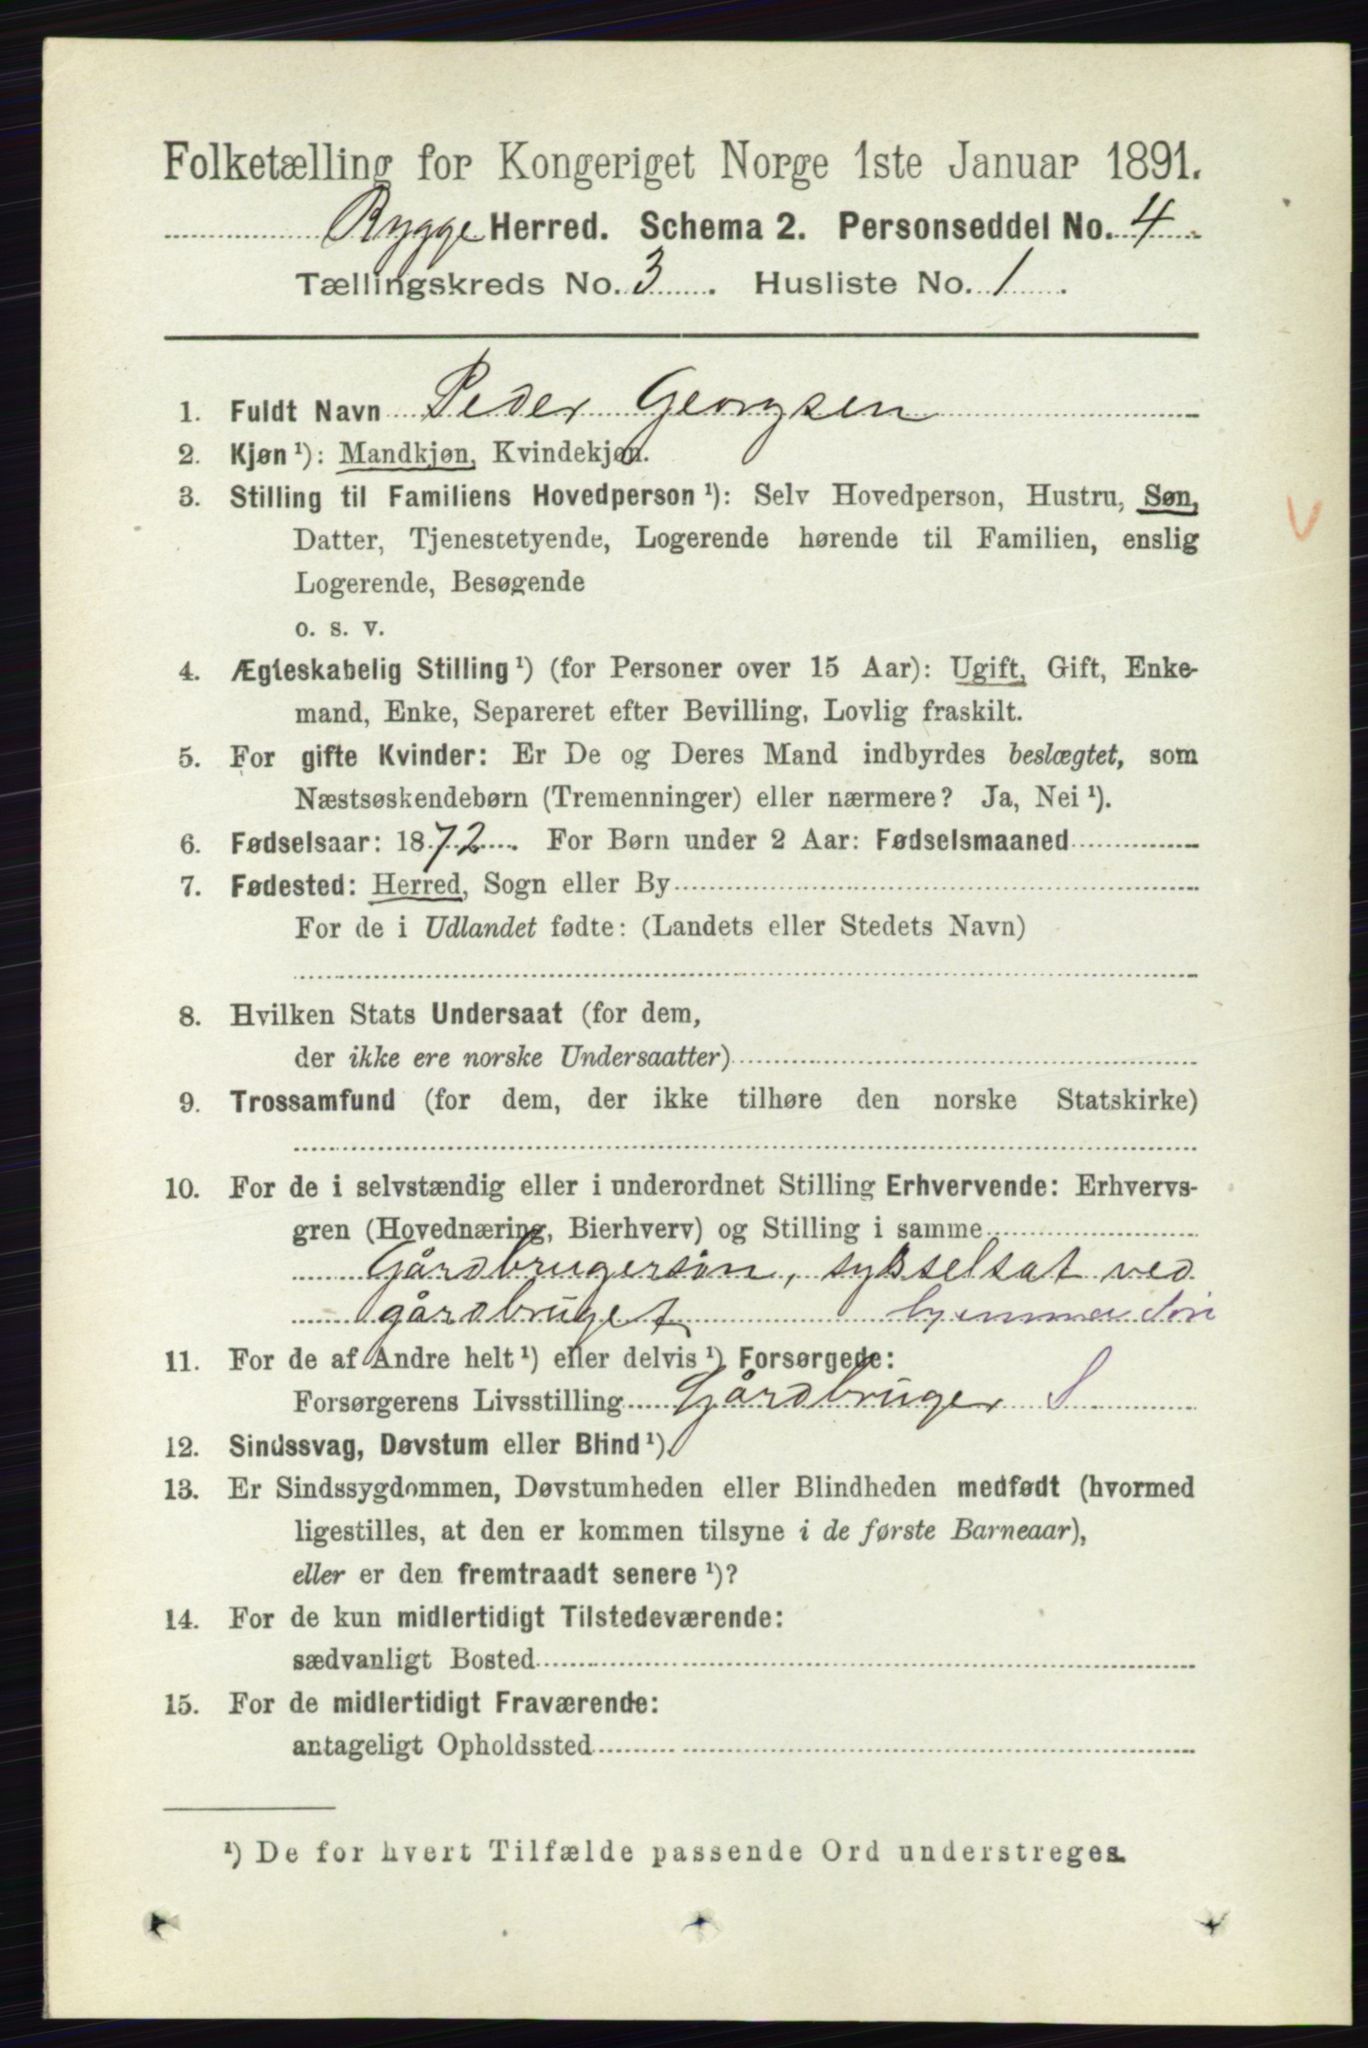 Folketælling for Kongeriget Norge 1ste Januar 1891.
Rygge Herred. Schema 2. Personseddel No. 4
Tællingskreds No. 3. Husliste No. 1.
1. Fuldt Navn Peder Georgsen
2. Kjøn ¹): Mandkjøn, Kvindekjøn.
3. Stilling til Familiens Hovedperson ¹): Selv Hovedperson, Hustru, Søn,
Datter, Tjenestetyende, Logerende hørende til Familien, enslig
Logerende, Besøgende
o. s. v.
4. Ægteskabelig Stilling ¹) (for Personer over 15 Aar): Ugift, Gift, Enke-
mand, Enke, Separeret efter Bevilling, Lovlig fraskilt.
5. For gifte Kvinder: Er De og Deres Mand indbyrdes beslægtet, som
Næstsøskendebørn (Tremenninger) eller nærmere? Ja, Nei ¹).
6. Fødselsaar: 1872. For Børn under 2 Aar: Fødselsmaaned
7. Fødested: Herred, Sogn eller By
For de i Udlandet fødte: (Landets eller Stedets Navn)
8. Hvilken Stats Undersaat (for dem,
der ikke ere norske Undersaatter)
9. Trossamfund (for dem, der ikke tilhøre den norske Statskirke)
10. For de i selvstændig eller i underordnet Stilling Erhvervende: Erhvervs-
gren (Hovednæring, Bierhverv) og Stilling i samme
Gårdbrugersön, sysselsat ved
gårdbruget
11. For de af Andre helt ¹) eller delvis ¹) Forsørgede:
Forsørgerens Livsstilling Gårdbruger S
12. Sindssvag, Døvstum eller Blind ¹).
13. Er Sindssygdommen, Døvstumheden eller Blindheden medfødt (hvormed
ligestilles, at den er kommen tilsyne i de første Barneaar),
eller er den fremtraadt senere ¹)?
14. For de kun midlertidigt Tilstedeværende:
sædvanligt Bosted
15. For de midlertidigt Fraværende:
antageligt Opholdssted
¹) De for hvert Tilfælde passende Ord understreges.